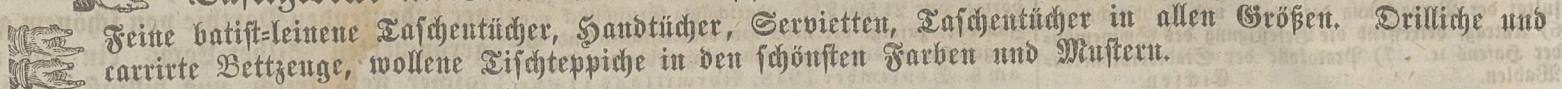 Feine batist-leinene Taschentücher, Handtücher, Servietten, Taschentücher in allen Größen. Drilliche und
carrirte Bettzeuge, wollene Tischteppiche in den schönsten Farben und Mustern.